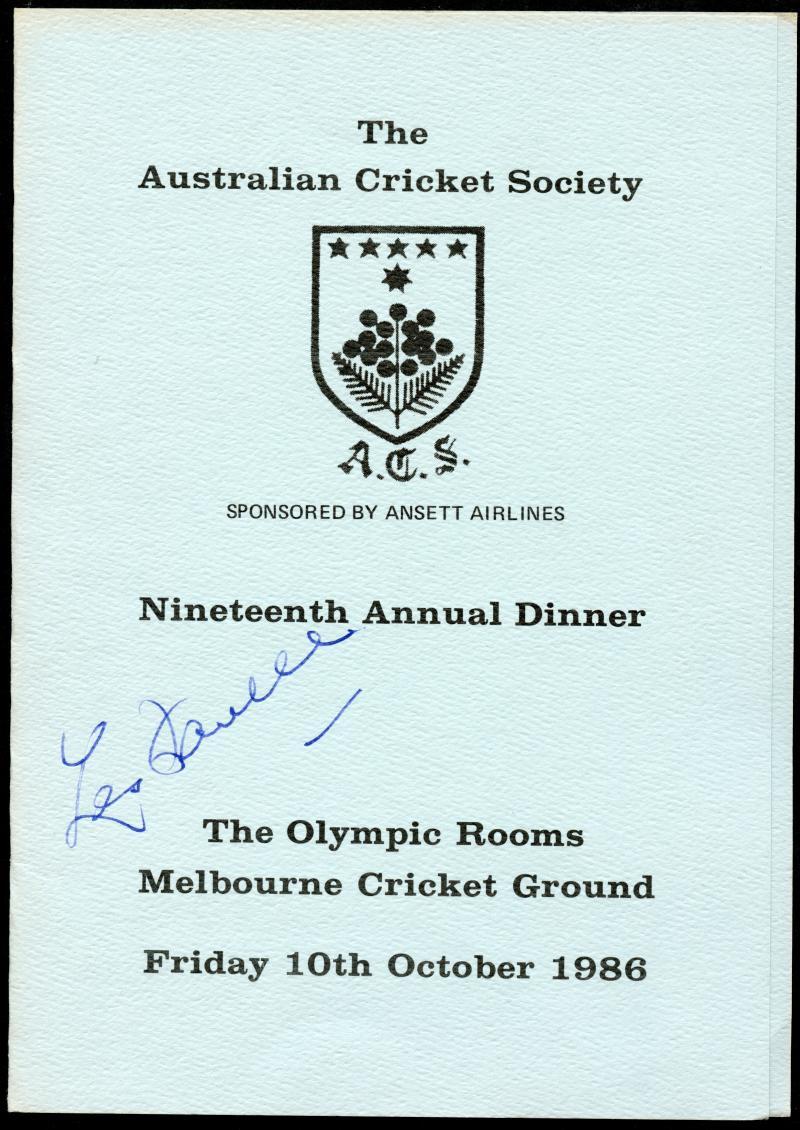 The
Australian Cricket Society
A.C.S.
SPONSORED BY ANSETT AIRLINES
Nineteenth Annual Dinner
The Olympic Rooms
Melbourne Cricket Ground
Friday 10th October 1986